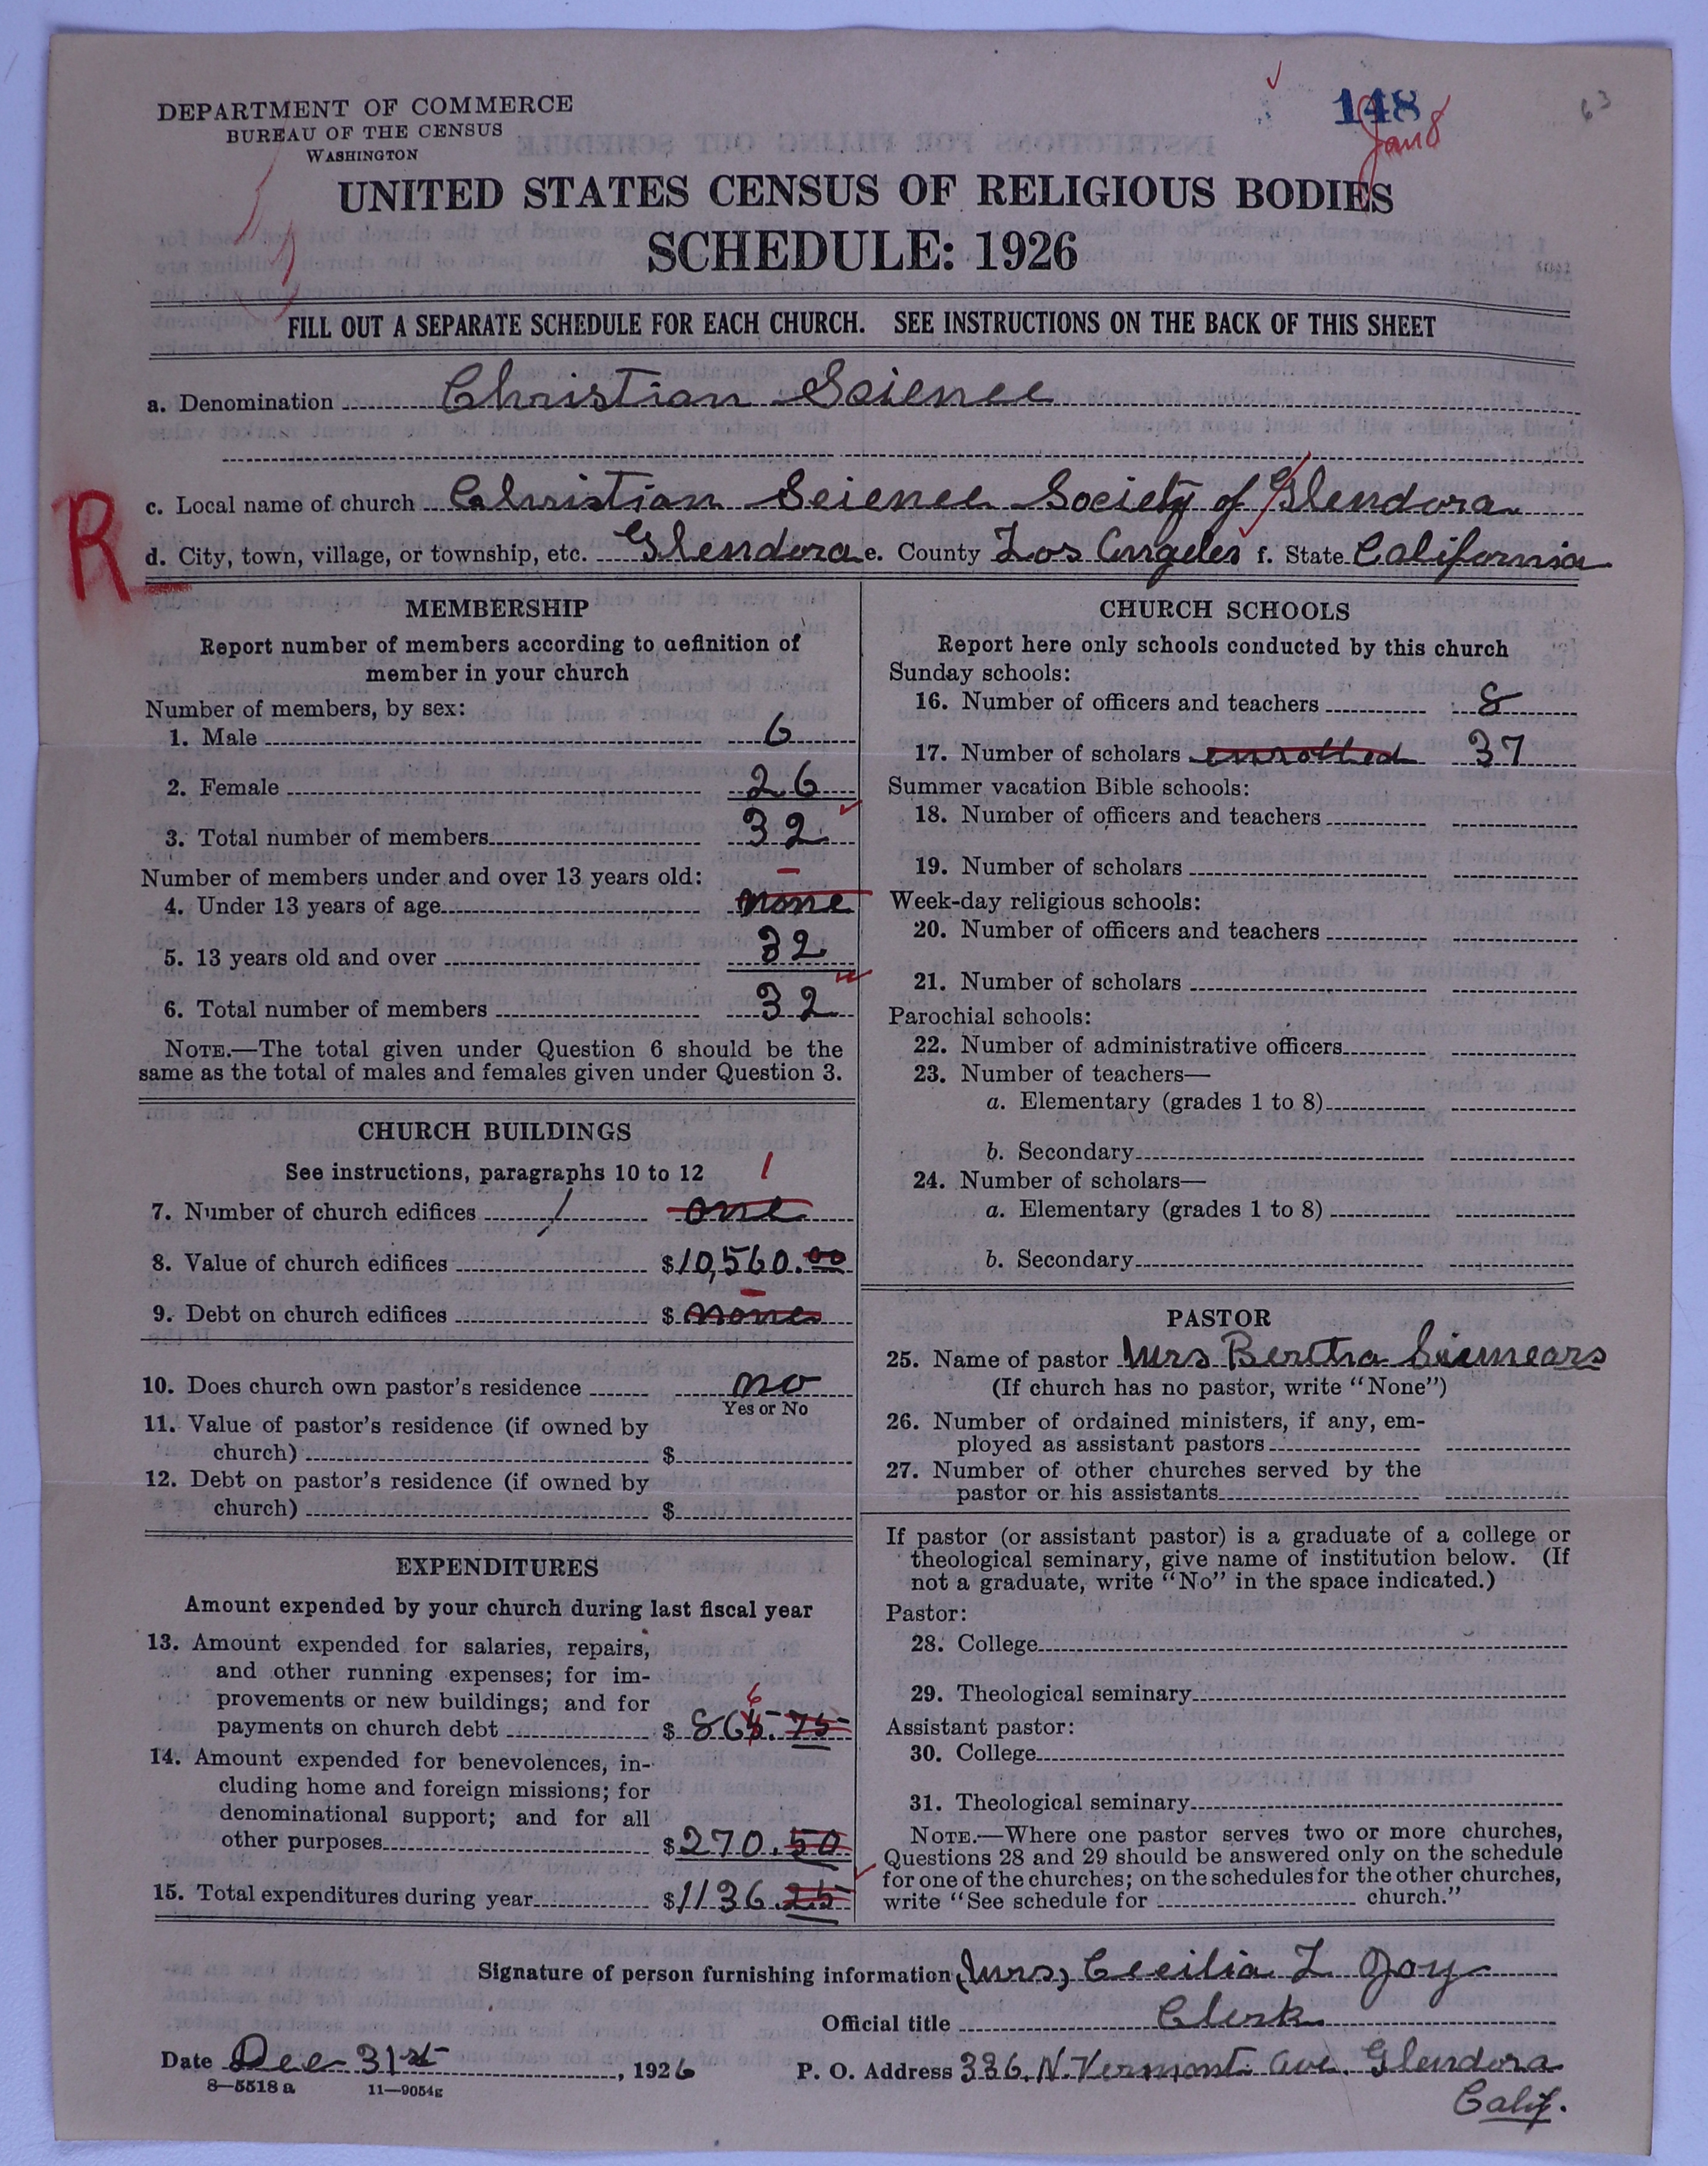 148
63
Jan 8
DEPARTMENT OF COMMERCE
BUREAU OF THE CENSUS
WASHINGTON
UNITED STATES CENSUS OF RELIGIOUS BODIES
SCHEDULE: 1926
FILL OUT A SEPARATE SCHEDULE FOR EACH CHURCH. SEE INSTRUCTIONS ON THE BACK OF THIS SHEET
a. Denomination Christian Science
R
c. Local name of church Christian Science Society of Glendora
d. City, town, village, or township, etc. Glendora e. County Los Angeles f. State California
MEMBERSHIP
Report number of members according to definition of
member in your church
Number of members, by sex:
1. Male 6
2. Female 26
3. Total number of members 32
Number of members under and over 13 years old:
4. Under 13 years of age none
5. 13 years old and over 32
6. Total number of members 32
NOTE.—The total given under Question 6 should be the
same as the total of males and females given under Question 3.
CHURCH BUILDINGS
See instructions, paragraphs 10 to 12
1
7. Number of church edifices / one
8. Value of church edifices $10,560.00
9. Debt on church edifices $ none
10. Does church own pastor's residence no
Yes or No
11. Value of pastor's residence (if owned by
church) $
12. Debt on pastor's residence (if owned by
church) $
EXPENDITURES
Amount expended by your church during last fiscal year
13. Amount expended for salaries, repairs,
and other running expenses; for im-
provements or new buildings; and for
6
payments on church debt $ 865.75
14. Amount expended for benevolences, in-
cluding home and foreign missions; for
denominational support; and for all
other purposes $270.50
15. Total expenditures during year $1136.25
CHURCH SCHOOLS
Report here only schools conducted by this church
Sunday schools:
16. Number of officers and teachers 8
17. Number of scholars enrolled 37
Summer vacation Bible schools:
18. Number of officers and teachers
19. Number of scholars
Week-day religious schools:
20. Number of officers and teachers
21. Number of scholars
Parochial schools:
22. Number of administrative officers
23. Number of teachers—
a. Elementary (grades 1 to 8)
b. Secondary
24. Number of scholars—
a. Elementary (grades 1 to 8)
b. Secondary
PASTOR
25. Name of pastor Mrs Bertha
(If church has no pastor, write "None")
26. Number of ordained ministers, if any, em-
ployed as assistant pastors
27. Number of other churches served by the
pastor or his assistants
If pastor (or assistant pastor) is a graduate of a college or
theological seminary, give name of institution below. (If
not a graduate, write "No" in the space indicated.)
Pastor:
28. College
29. Theological seminary
Assistant pastor:
30. College
31. Theological seminary
NOTE.—Where one pastor serves two or more churches,
Questions 28 and 29 should be answered only on the schedule
for one of the churches; on the schedules for the other churches,
write "See schedule for church."
Signature of person furnishing information (Mrs) Cecilia L Joy
Official title Clerk
Date Dec 31st, 1926 P. O. Address 336. N. Vermont. Ave. Glendora
8—5518 a 11—9054g
Calif.